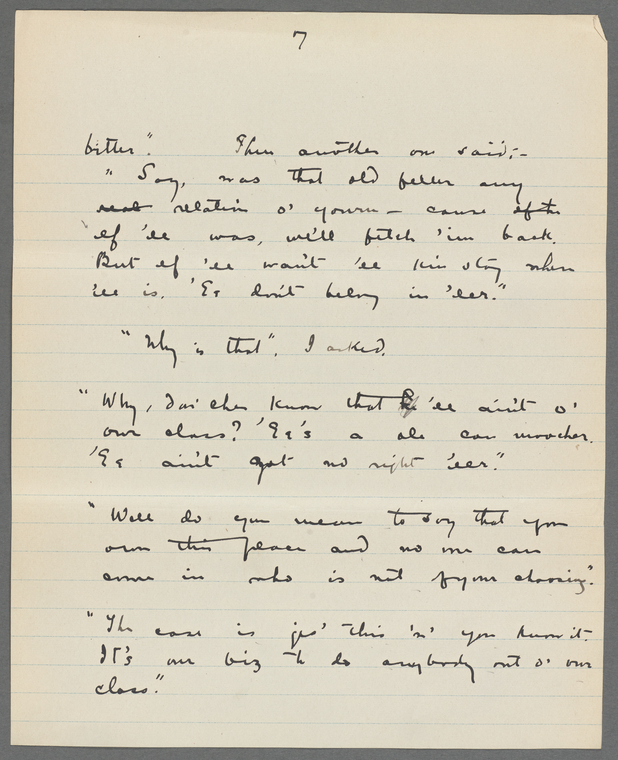 7
bitter." Then another one said:-
"Say, was that old feller any
real relation o' yourn - cause if th
ef 'ee was, we'll fetch 'im back.
But ef 'ee wan't 'ee kin stay when
'ee is. 'Ee don't belong in 'eer."
"Why is that". I asked.
"Why, don' cher know that he 'ee ain't o'
our class? 'Ee's a ole can moocher.
'Ee ain't got no right 'eer."
"Well do you mean to say that you
own this place and no one can
come in who is not of your choosing".
"Th case is jes' this 'n' you know it.
It's our biz to do anybody out o' our
class."